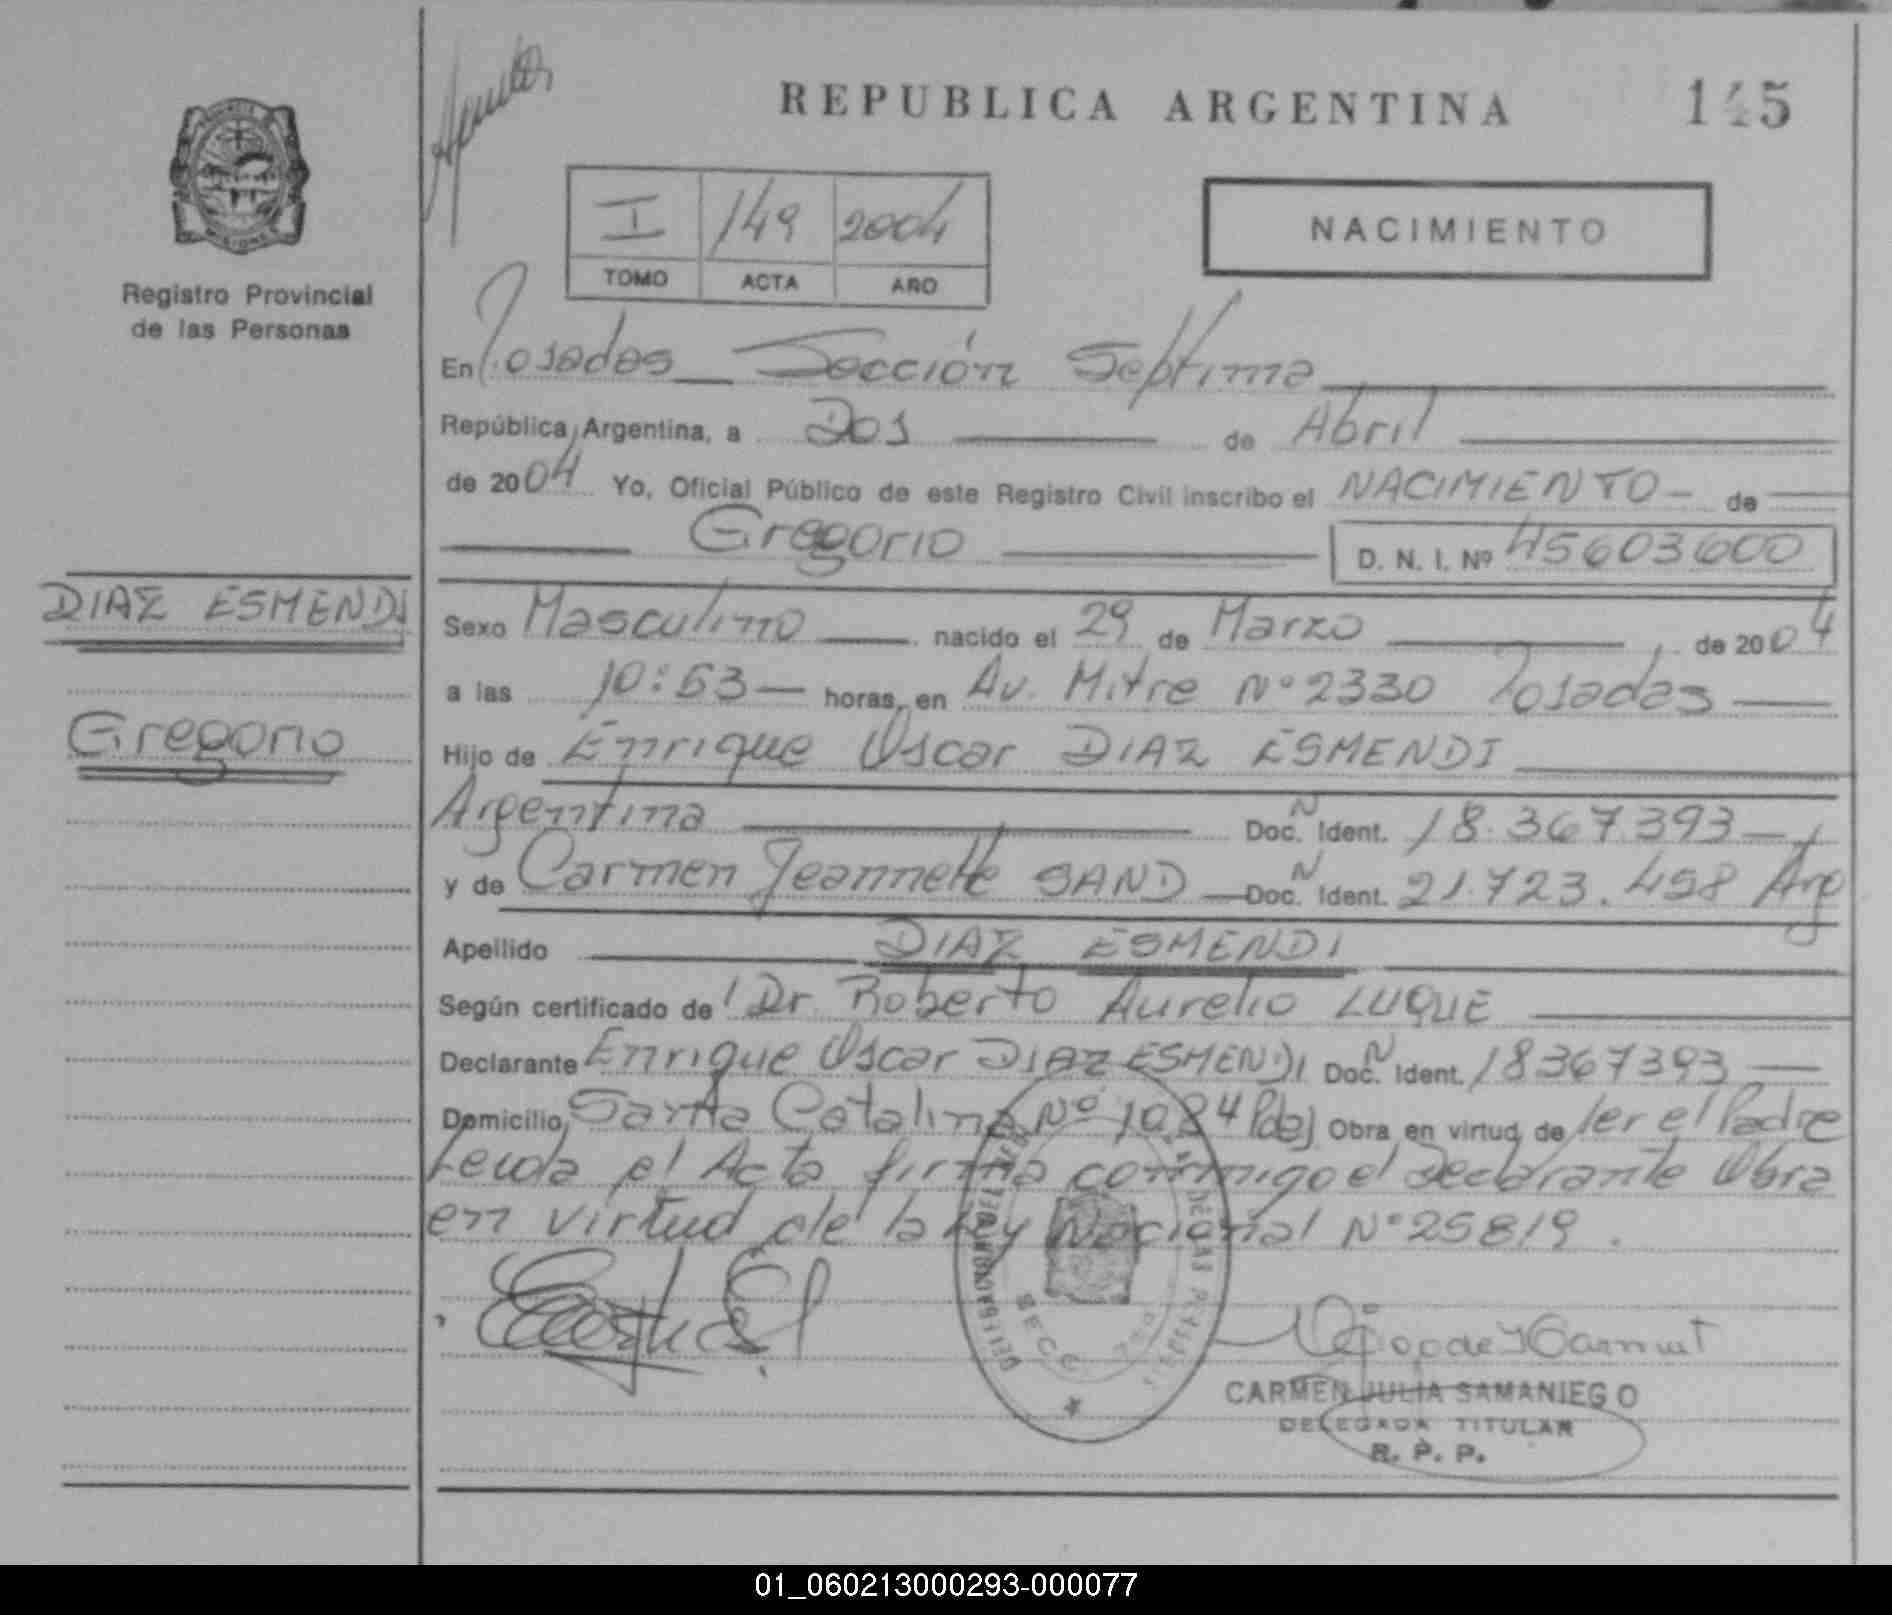 REPUBLICA ARGENTINA
145
PROVINCIA
MISIONES
Registro Provincial
de las Personas
I 149 2004
TOMO ACTA AÑO
NACIMIENTO
En Posadas Sección Septima
República Argentina, a Dos de Abril
de 2004 Yo, Oficial Público de este Registro Civil inscribo el NACIMIENTO de
Gregorio D. N. I. Nº 45603600
DIAZ ESMENDI
Gregorio
Sexo Masculino nacido el 29 de Marzo de 2004
a las 10:53 horas, en Av. Mitre Nº 2330 Posadas
Hijo de Enrique Oscar DIAZ ESMENDI
Argentina Doc. N Ident. 18.367.393
y de Carmen Jeannette SAND Doc. N Ident. 21.723.498 Arg
Apellido DIAZ ESMENDI
Según certificado de Dr. Roberto Aurelio LUQUE
Declarante Enrique Oscar DIAZ ESMENDI Doc. N Ident. 18367393
Domicilio Santa Catalina Nº 1084 Pdas Obra en virtud de ser el Padre
Leida el Acta firma conmigo el declarante Obra
en virtud de la Ley Nacional Nº 25819.
CARMEN JULIA SAMANIEGO
DELEGADA TITULAR
R. P. P.
01_060213000293-000077